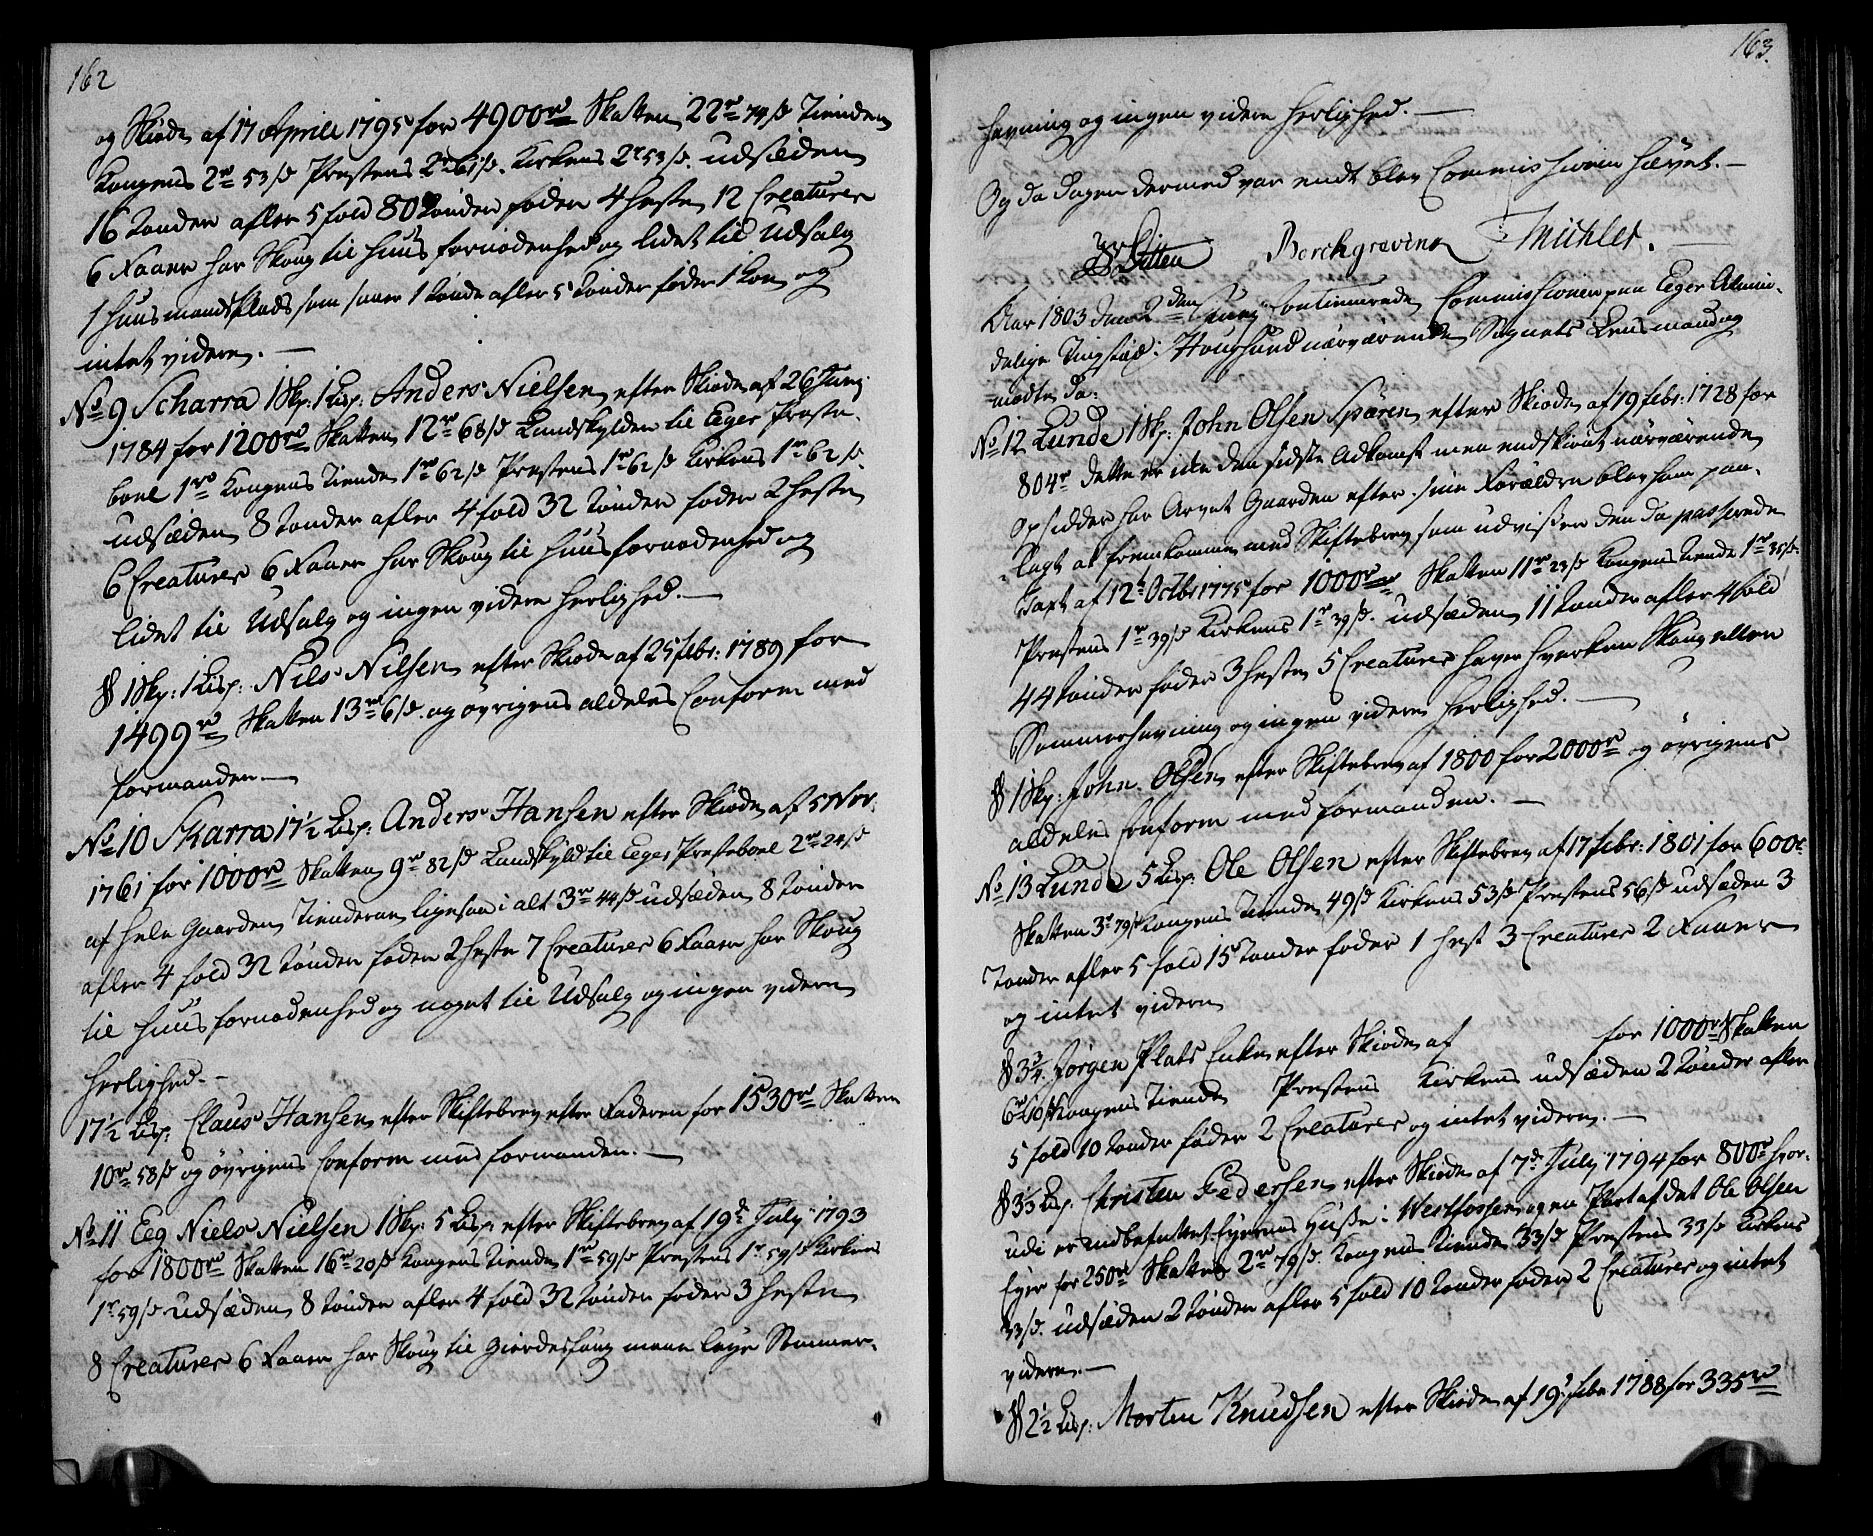 162
og Skiøde af 17 Aprill 1795 for 4900rd Skatten 22rd 74s Tienden
Kongens 2rd 53s Præstens 2rd 61s. Kirkens 2r 53s. udsæden
16 Tønder afler 5 fold 80 Tønder føder 4 heste 12 Creaturer
6 Faarer har Skoug til Huus fornødenhed og lidet til Udsalg
1 Huusmandsplads som saaer 1 Tønde afler 5 Tønder føder 1 Koe og
intet videre. —
No 9 Scharra 1 Skp: 1 Lisp: Anders Nielsen efter Skiøde af 26 Junj
1784 for 1200rd Skatten 12rd 68s Landskylden til Eger Præste-
boel 1rd Kongens Tiende 1rd 62s Præstens 1rd 62s Kirkens 1rd 62s.
udsæden 8 Tønder afler 4 fold 32 Tønder føder 2 heste
6 Creaturer 6 Faarer har Skoug til Huusfornødenhed og
lidet til Udsalg og ingen videre herlighed. —
§ 1 Skp: 1 Lisp: Niels Nilsen efter Skiøde af 25 febr: 1789 for
1499rd Skatten 13rd 6s. og øvrigens aldeles Conform med
formanden. —
No 10 Skarra 17½ Lisp: Anders Hansen efter Skiøde af 5 Nov:
1761 for 1000rd Skatten 9rd 82s Landskyld til Eger Præsteboel 2rd 24s
af hele Gaarden Tienderne ligesaa i alt 3rd 44s udsæden 8 Tønder
afler 4 fold 32 Tønder føder 2 heste 7 Creaturer 6 Faarer har Skoug
til Huusfornødenhed og noget til Udsalg og ingen videre
herlighed. —
17½ Lisp: Claus Hansen efter Skiftebrev efter Faderen for 1530rd Skatten
10rd 58s og øvrigens Conform med formanden. —
No 11 Eeg Niels Nielsen 1 Skp: 5 Lisp: efter Skiftebrev af 19d July 1793
for 1800rd Skatten 16rd 20s Kongens Tiende 1rd 59s Præstens 1r 59s Kirkens
1r 59s udsæden 8 Tønder afler 4 fold 32 Tønder føder 3 heste
8 Creaturer 6 Faarer har Skoug til Gierdesfang maae leye Sommer-
163.
havning og ingen videre herlighed. —
Og da dagen dermed var endt blev Commissionen hævet. —
Borchgrevink Michlet. —
Aar 1803 den 2den Junj Continuerede Commissionen paa Eger Almin-
delige Tingstæd: Hougsund nærværende Sognets Lensmand og
mødte da:
No 12 Lunde 1 Skp: John Olsen Spåren efter Skiøde af 19 febr: 1728 for
804r dette er ikke den sidste Adkomst men endskiønt nærværende
Opsidder har Arvet Gaarden efter sine Forældre blev ham paa-
lagt at fremkomme med Skiftebrev som udviser den da passerede
Taxt af 12t Octbr 1775 for 1000rd Skatten 11rd 23s Kongens Tiende 1rd 35s.
Præstens 1rd 39s Kirkens 1r 39s. udsæden 11 Tønder afler 4 fold
44 Tønder føder 3 heste 5 Creaturer haver hverken Skoug eller
Sommerhavning og ingen videre herlighed. —
§ 1 Skp: John Olsen efter Skiftebrev af 1800 for 2000rd og øvrigens
aldeles Conform med formanden. —
No 13 Lunde 5 Lisp: Ole Olsen efter Skiftebrev af 17 febr: 1801 for 600r
Skatten 3r 79s Kongens Tiende 49s Kirkens 53s Præstens 56s udsæden 3
Tønder afler 5 fold 15 Tønder føder 1 hest 3 Creaturer 2 Faarer
og intet videre
§ 3¾. Jørgen Plats Enke efter Skiøde af for 1000rd Skatten
6rd 10s Kongens Tiende Præstens Kirkens udsæden 2 Tønder afler
5 fold 10 Tønder føder 2 Creaturer og intet videre. —
§ 3⅓ Lisp. Christen Pedersen efter Skiøde af 7d July 1794 for 800rd hvor-
udi er indbefattet Huse i Westfossen og en Part af det Ole Olsen
Eyer for 250rd Skatten 2rd 79s. Kongens Tiende 33s Præstens 33s Kirkens
33s. udsæden 2 Tønder afler 5 fold 10 Tønder føder 2 Creaturer og intet
videre. —
§ 2½ Lisp: Morten Knudsen efter Skiøde af 19d febr 1788 for 335rd